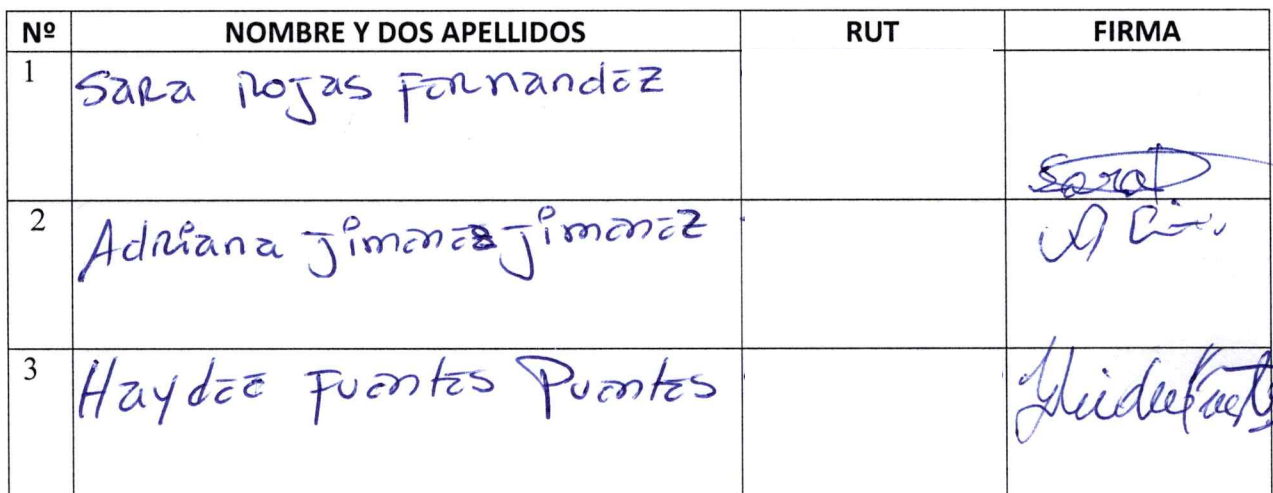 Nº NOMBRE Y DOS APELLIDOS RUT FIRMA
1 Sara Rojas Fernandez
Sara
2 Adriana Jimenez Jimenez
3 Haydee Fuentes Puentes